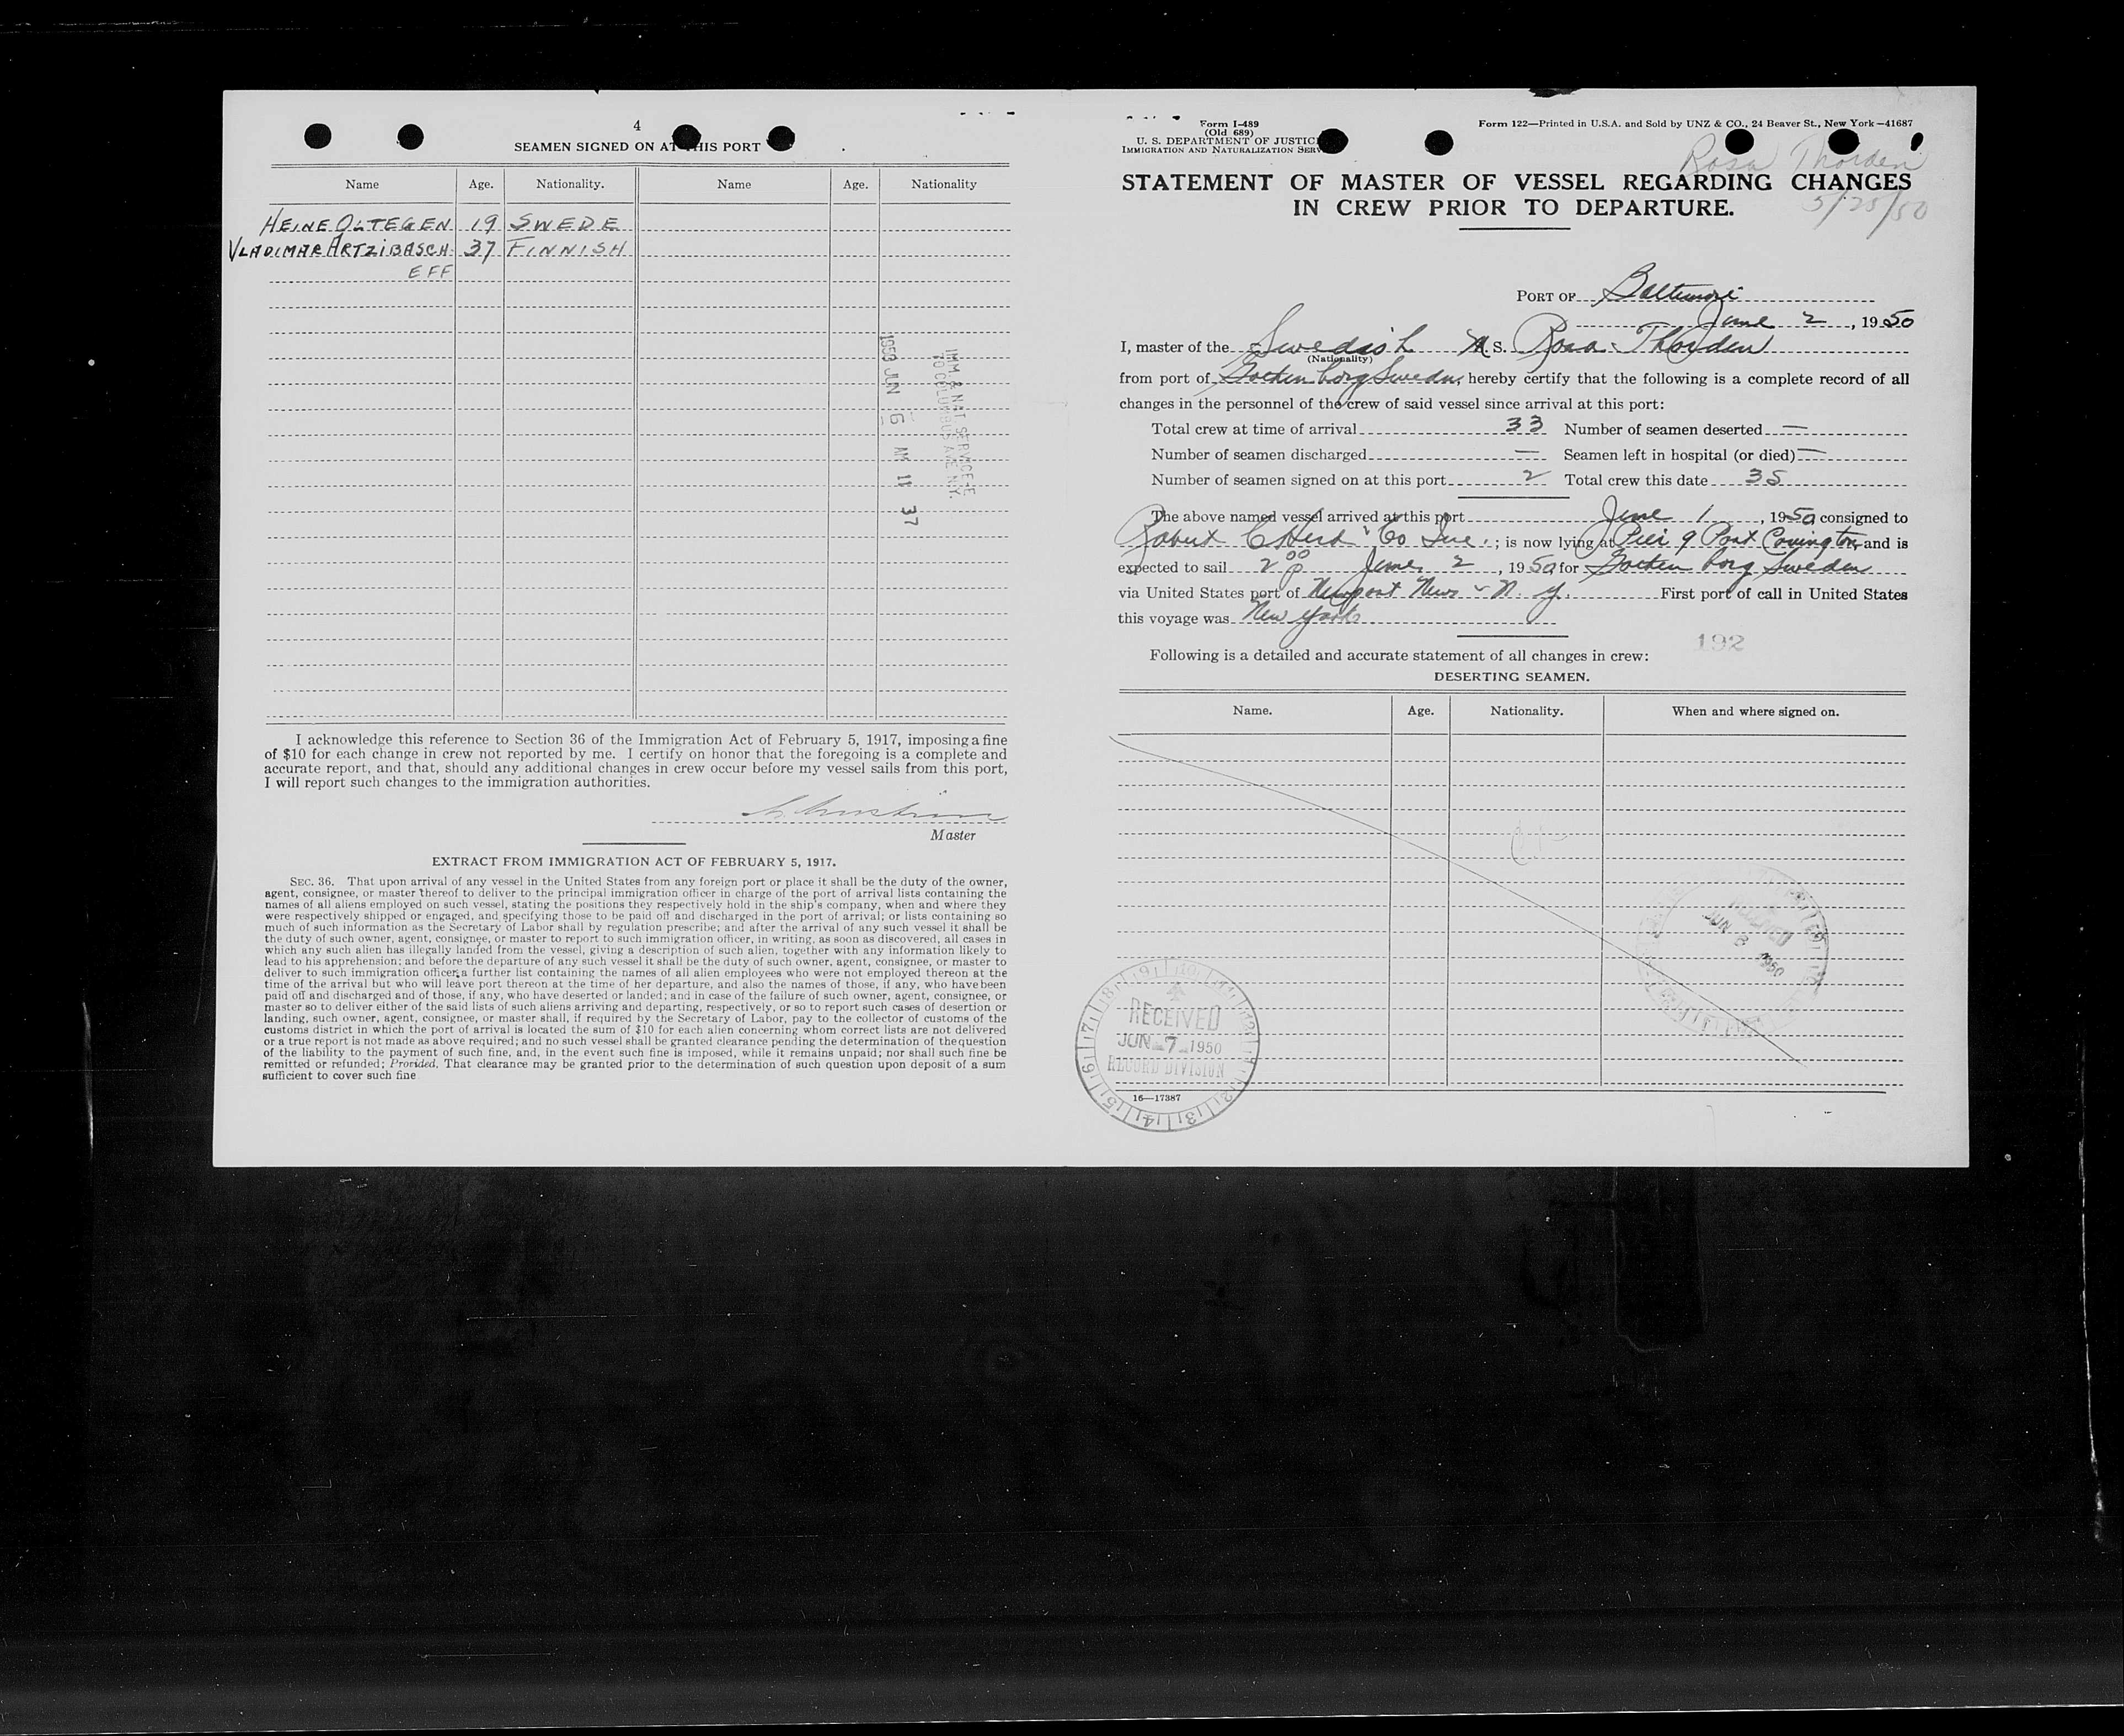 4
SEAMEN SIGNED ON AT THIS PORT
Name Age. Nationality. Name Age. Nationality
HEINE OLTEGEN 19 SWEDE
VLADIMAR ARTZIBASCH- 37 FINNISH
EFF
IMM. & NAT. SERVICE
70 COLUMBUS AVE N.Y.
1950 JUN 6 AM 11 37
I acknowledge this reference to Section 36 of the Immigration Act of February 5, 1917, imposing a fine
of $10 for each change in crew not reported by me. I certify on honor that the foregoing is a complete and
accurate report, and that, should any additional changes in crew occur before my vessel sails from this port,
I will report such changes to the immigration authorities.
Master
EXTRACT FROM IMMIGRATION ACT OF FEBRUARY 5, 1917.
SEC. 36. That upon arrival of any vessel in the United States from any foreign port or place it shall be the duty of the owner,
agent, consignee, or master thereof to deliver to the principal immigration officer in charge of the port of arrival lists containing the
names of all aliens employed on such vessel, stating the positions they respectively hold in the ship's company, when and where they
were respectively shipped or engaged, and specifying those to be paid off and discharged in the port of arrival; or lists containing so
much of such information as the Secretary of Labor shall by regulation prescribe; and after the arrival of any such vessel it shall be
the duty of such owner, agent, consignee, or master to report to such immigration officer, in writing, as soon as discovered, all cases in
which any such alien has illegally landed from the vessel, giving a description of such alien, together with any information likely to
lead to his apprehension; and before the departure of any such vessel it shall be the duty of such owner, agent, consignee, or master to
deliver to such immigration officer a further list containing the names of all alien employees who were not employed thereon at the
time of the arrival but who will leave port thereon at the time of her departure, and also the names of those, if any, who have been
paid off and discharged and of those, if any, who have deserted or landed; and in case of the failure of such owner, agent, consignee, or
master so to deliver either of the said lists of such aliens arriving and departing, respectively, or so to report such cases of desertion or
landing, such owner, agent, consignee, or master shall, if required by the Secretary of Labor, pay to the collector of customs of the
customs district in which the port of arrival is located the sum of $10 for each alien concerning whom correct lists are not delivered
or a true report is not made as above required; and no such vessel shall be granted clearance pending the determination of the question
of the liability to the payment of such fine, and, in the event such fine is imposed, while it remains unpaid; nor shall such fine be
remitted or refunded; Provided, That clearance may be granted prior to the determination of such question upon deposit of a sum
sufficient to cover such fine
Form I-489
(Old 689)
U. S. DEPARTMENT OF JUSTICE
IMMIGRATION AND NATURALIZATION SERV
Form 122—Printed in U.S.A. and Sold by UNZ & CO., 24 Beaver St., New York—41687
Rosa Thorden
5/25/50
STATEMENT OF MASTER OF VESSEL REGARDING CHANGES
IN CREW PRIOR TO DEPARTURE.
PORT OF Baltimore
June 2, 1950
I, master of the Swedish M. S. Rosa Thorden
(Nationality)
from port of Gothenborg Sweden, hereby certify that the following is a complete record of all
changes in the personnel of the crew of said vessel since arrival at this port:
Total crew at time of arrival 33 Number of seamen deserted —
Number of seamen discharged — Seamen left in hospital (or died) —
Number of seamen signed on at this port 2 Total crew this date 35
The above named vessel arrived at this port June 1, 1950 consigned to
Robert C Herd & Co Inc.; is now lying at Pier 9 Port Covington, and is
expected to sail 2 00 P June 2, 1950 for Gothenborg Sweden
via United States port of Newport News & N. Y. First port of call in United States
this voyage was New York
192
Following is a detailed and accurate statement of all changes in crew:
DESERTING SEAMEN.
Name. Age. Nationality. When and where signed on.
RECEIVED
JUN 8 1950
RECEIVED
JUN 7 1950
RECORD DIVISION
16—17387